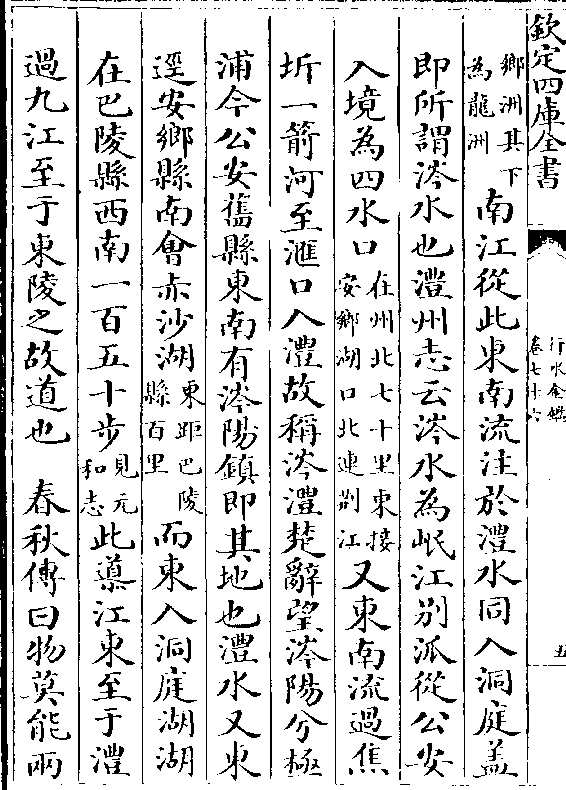 欽定四庫全書
行水金鑑
卷七十六
五
鄉洲其下
為龍洲
南江從此東南流注於澧水同入洞庭盖
即所謂涔水也澧州志云涔水為岷江别派從公安
入境為四水口
在州北七十里東接
安鄉湖口北連荆江
又東南流過焦
圻一箭河至滙口入澧故稱涔澧楚辭望涔陽兮極
浦今公安舊縣東南有涔陽鎮即其地也澧水又東
逕安鄉縣南會赤沙湖
東距巴陵
縣百里
而東入洞庭湖湖
在巴陵縣西南一百五十步
見元
和志
此導江東至于澧
過九江至于東陵之故道也　春秋傳曰物莫能兩